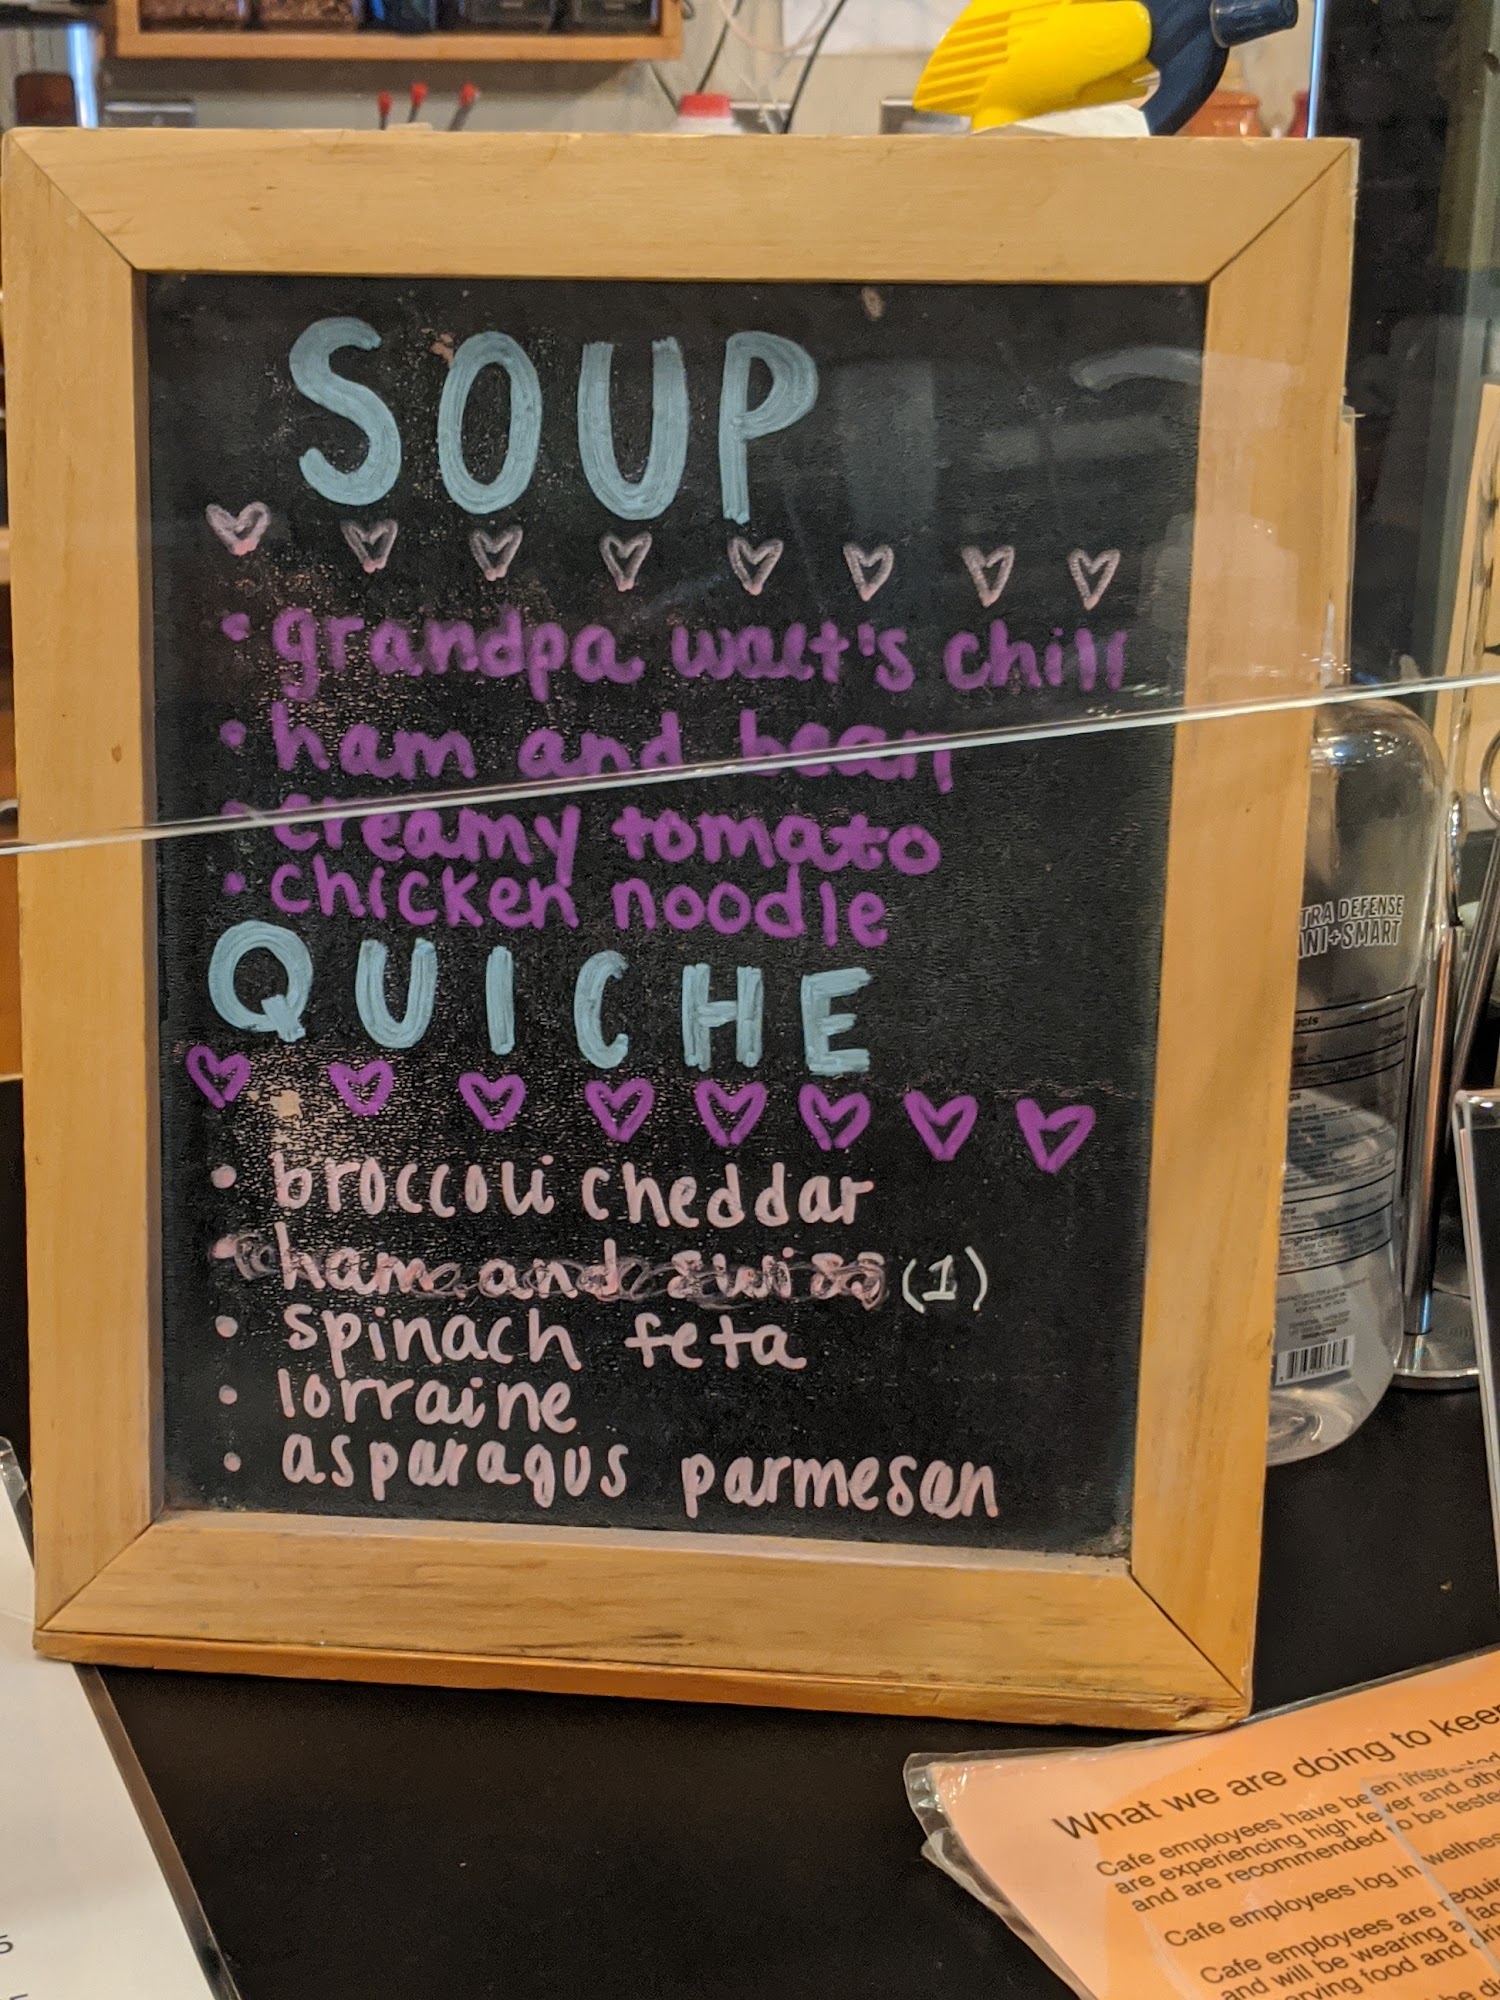 SOUP
• grandpa walt's chili
• ham and bean
• creamy tomato
• chicken noodle
QUICHE
• broccoli cheddar
• ham and swiss (1)
• spinach feta
• lorraine
• asparagus parmesan
TRA DEFENSE
ANI+SMART
What we are doing to keep
Cafe employees have been instructed
are experiencing high fever and othe
and are recommended to be teste
Cafe employees log in wellnes
Cafe employees are requir
and will be wearing a fac
erving food and drin
be di
5